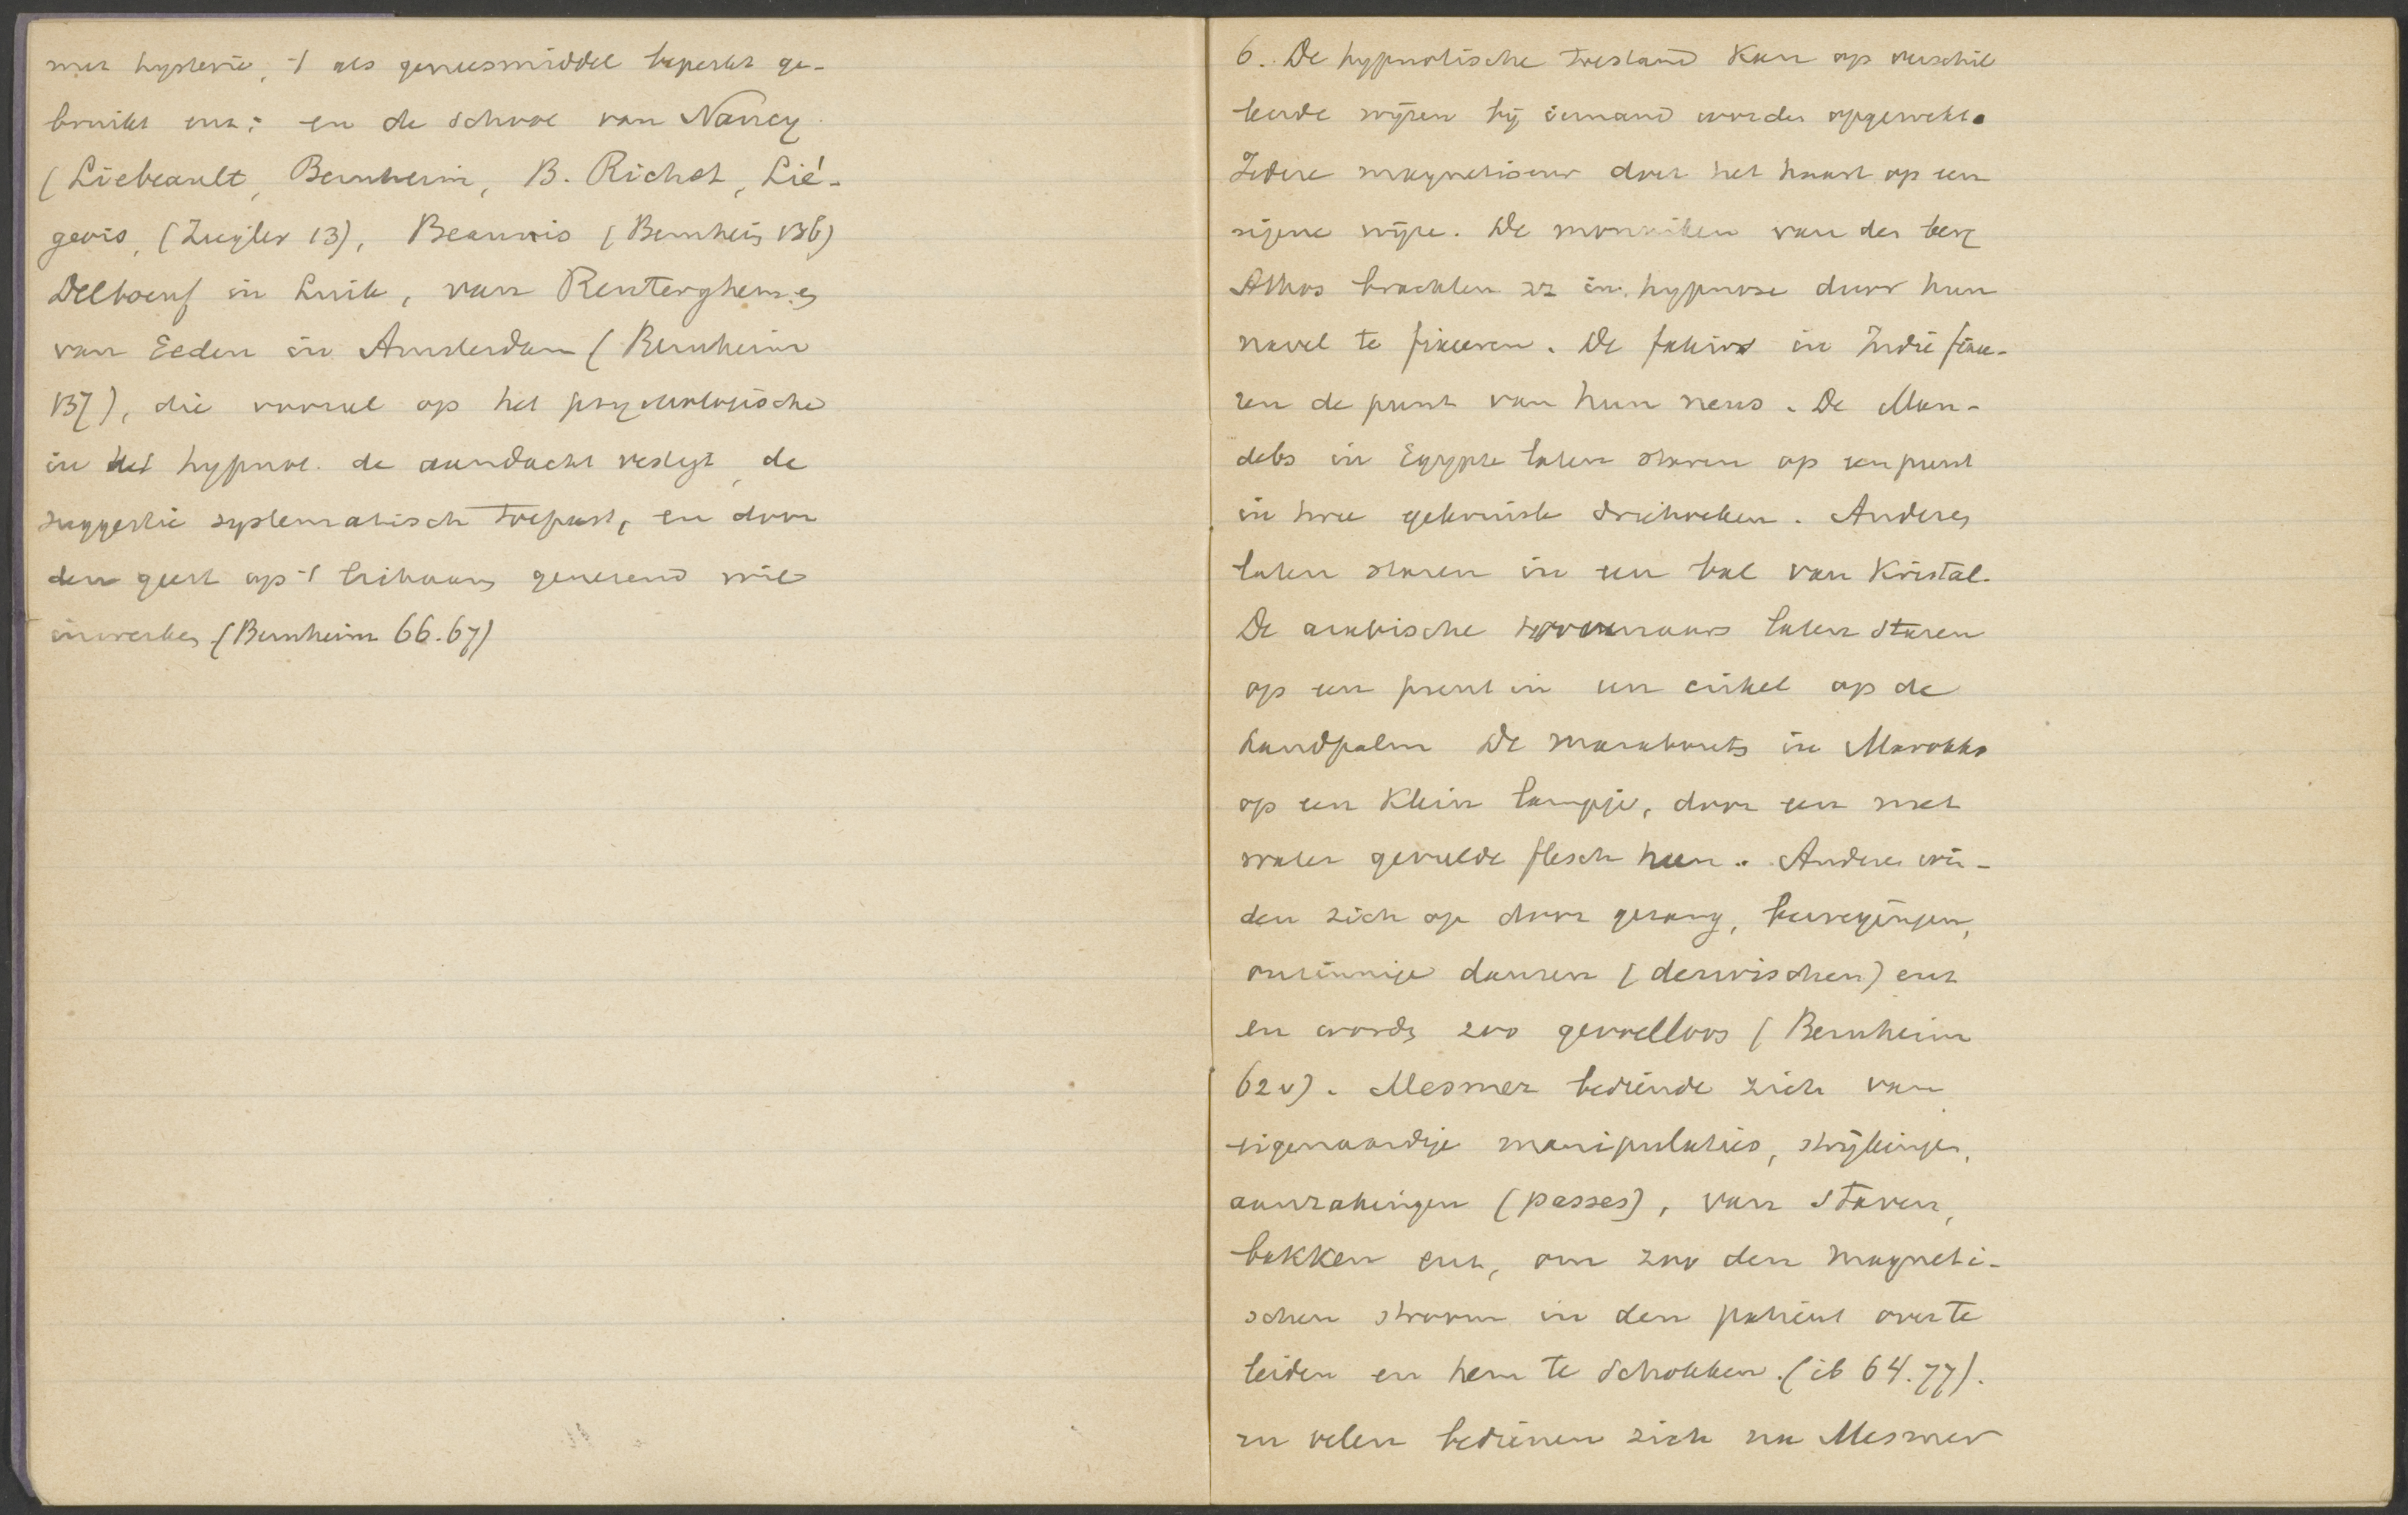 met hysterie, 't als geneesmiddel beperkt ge-
bruikt enz; en de school van Nancy
(Liebeault, Bernheim, B. Richet, Lié-
geois, (Ziegler 13), Beaunis (Bernheim 136)
Delboeuf in Luik, van Renterghem en
van Eeden in Amsterdam (Bernheim
137), die vooral op het psychologische
in het hypnot. de aandacht vestigt, de
suggestie systematisch toepast, en door
den geest op 't lichaam genezend wil
inwerken (Bernheim 66.67)
6. De hypnotische toestand kan op verschil
lende wijzen bij iemand worden opgewekt.
Iedere magnetiseur doet het haast op een
eigene wijze. De monniken van den berg
Athos brachten zz in hypnose door hun
navel te fixeeren. De fakirs in Indië fixee-
ren de punt van hun neus. De Man-
debs in Egypte laten staren op een punt
in twee gekruiste driehoeken. Anderen
laten staren in een bal van kristal.
De arabische toovenaars laten staren
op een punt in een cirkel op de
handpalm De marabouts in Marokko
op een klein lampje, door een met
water gevulde flesch heen. Anderen win-
den zich op door gezang, bewegingen,
onzinnige dansen (derwischen) enz
en worden zoo gevoelloos (Bernheim
62v). Mesmer bediende zich van
eigenaardige manipulaties, strijkingen,
aanrakingen (passes), van staven,
bakken enz, om zoo den magneti-
schen stroom in den patient over te
leiden en hem te schokken. (ib 64.77).
zn velen bedienen zich na Mesmer